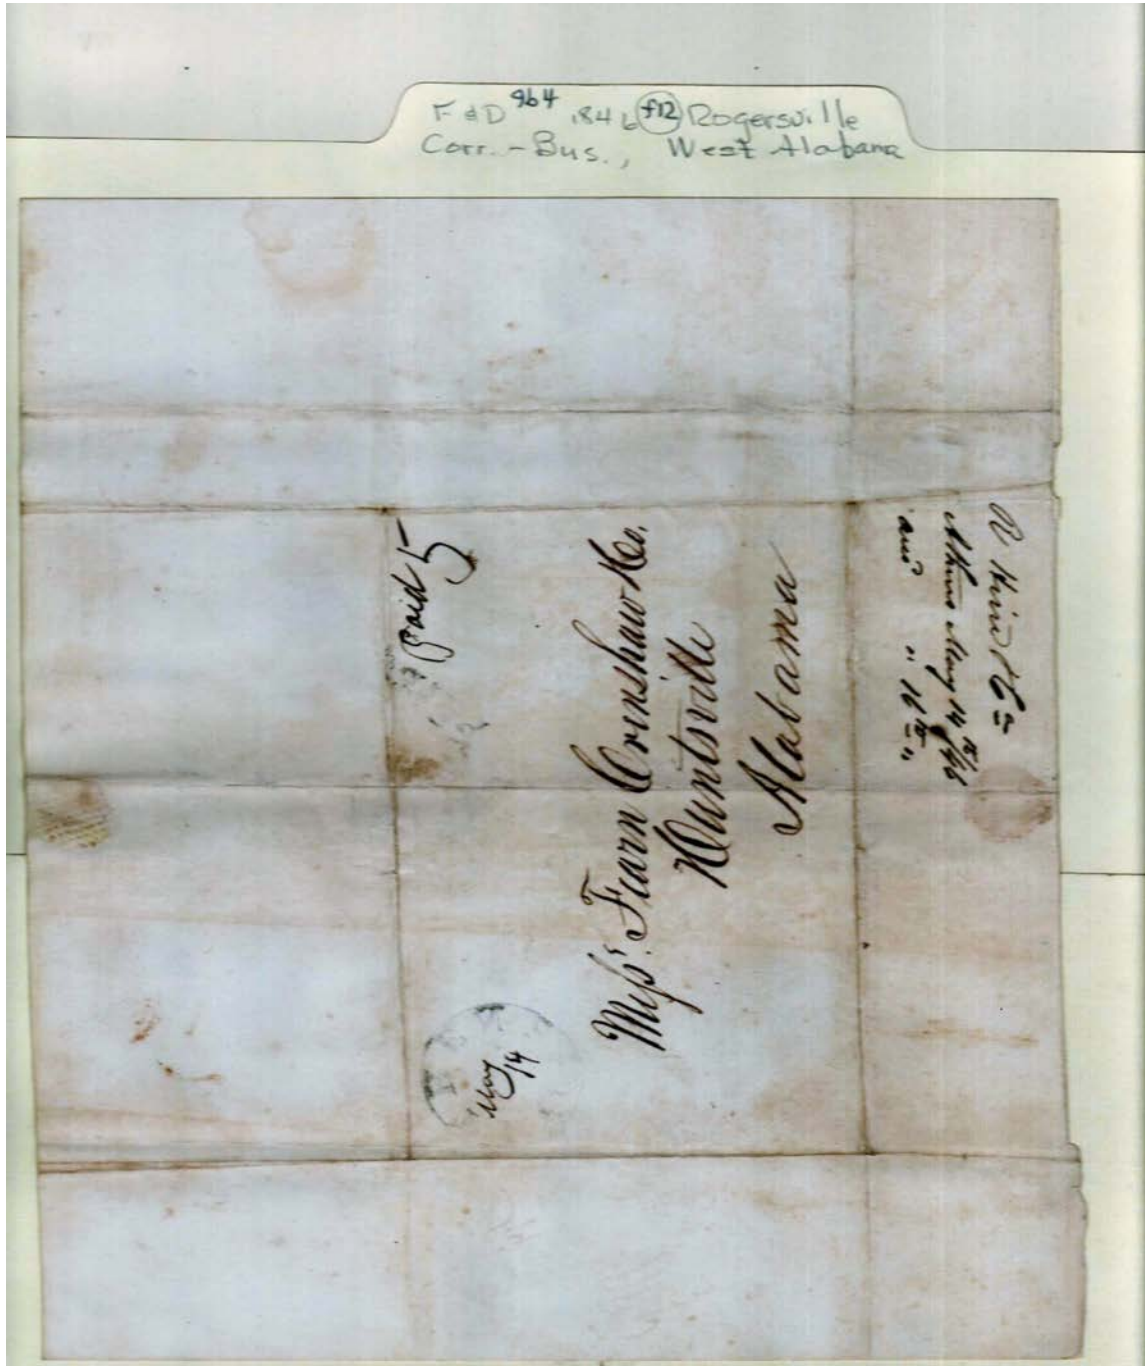 F & D 964 1846 f12 Rogersville
Corr. - Bus., West Alabama
Paid 5
May
14
Messrs. Fearn Crenshaw & Co.
Huntsville
Alabama
& Co
Athens May 14th /46
ansd " 16th "